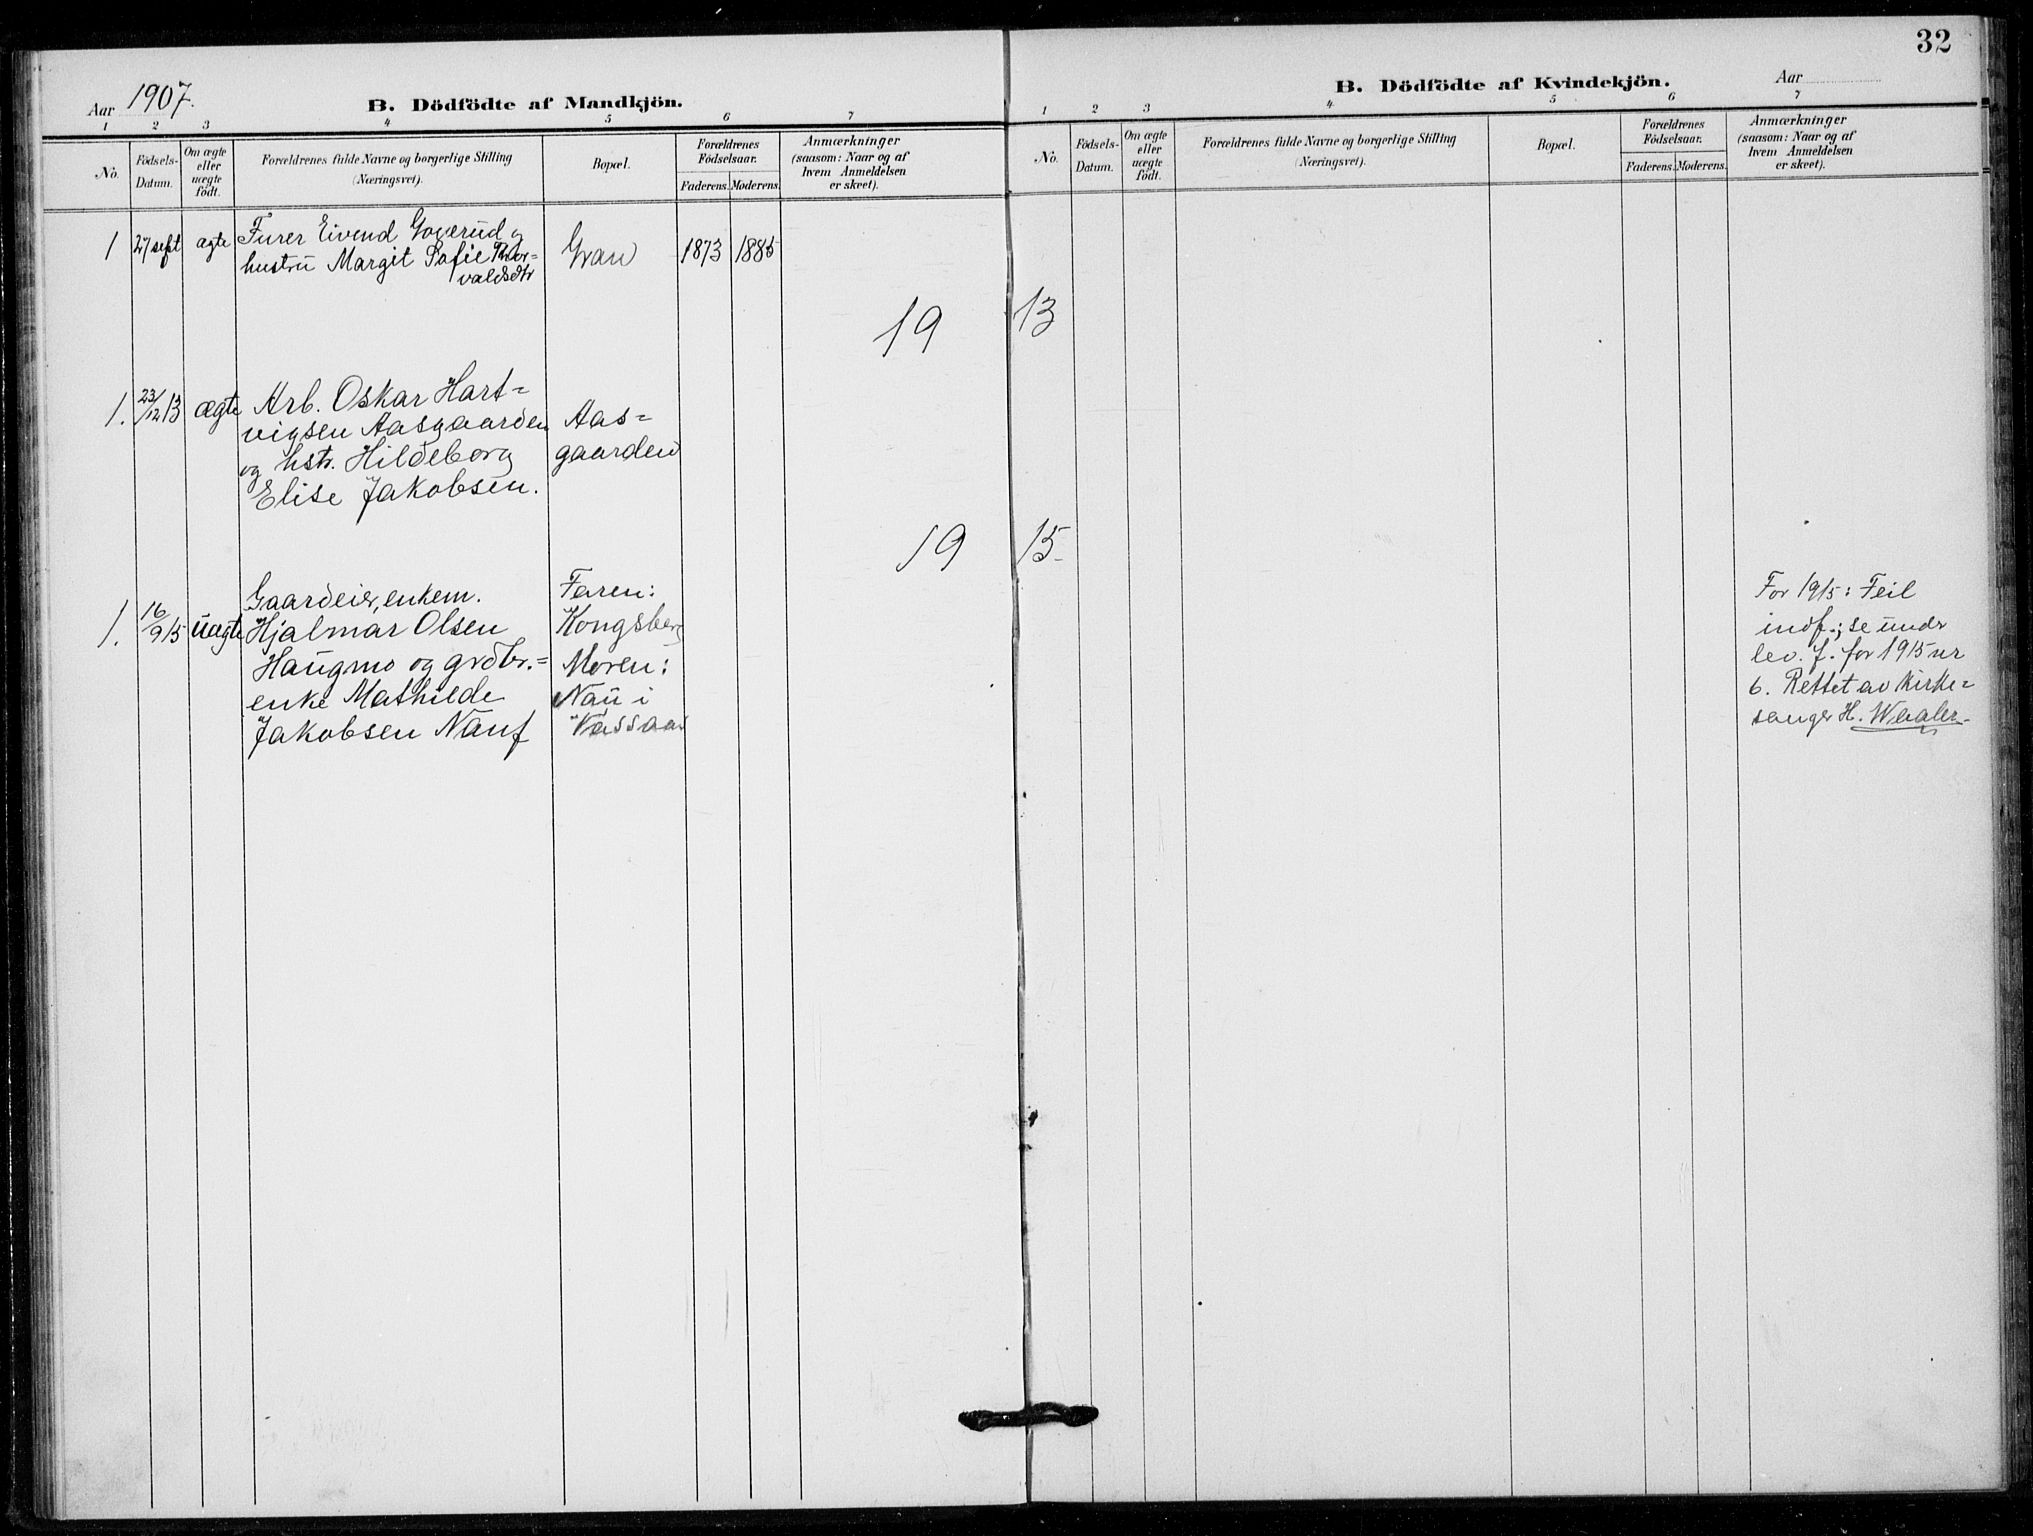 Aar 1907.
B. Dödfödte af Mandkjön.
1 2 3 4 5 6 7
No.
Födsels-
Datum.
Om ægte
eller
uægte
födt.
Forældrenes fulde Navne og borgerlige Stilling
(Næringsvei).
Bopæl.
Forældrenes
Födselsaar.
Faderens. Moderens.
Anmærkninger
(saasom: Naar og af
hvem Anmeldelsen
er skeet).
1 27 sept ægte Furer Eivend Goverud og
hustru Margit Sofie Thor-
valdsdtr
Gran 1873 1885
19 13
1. 23/12 13 ægte Arb. Oskar Hart=
vigsen Aasgaarden
og hstr. Hildeborg
Elise Jakobsen.
Aas=
gaarden
19 15
1. 16/9 15 uægte Gaardeier, enkem.
Hjalmar Olsen
Haugmo og grdbr.=
enke Mathilde
Jakobsen Nauf
Faren:
Kongsberg
Moren:
Nau i
Vassaas
32
B. Dödfödte af Kvindekjön.
Aar
1 2 3 4 5 6 7
No.
Födsels-
Datum.
Om ægte
eller
uægte
födt.
Forældrenes fulde Navne og borgerlige Stilling
(Næringsvei).
Bopæl.
Forældrenes
Födselsaar.
Faderens. Moderens.
Anmærkninger
(saasom: Naar og af
hvem Anmeldelsen
er skeet).
For 1915: Feil
indf.; se under
lev. f. for 1915 nr
6. Rettet av kirke=
sanger H. Waaler.